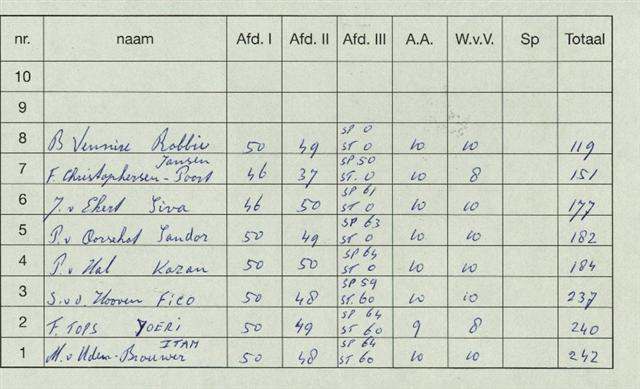 nr. naam Afd. I Afd. II Afd. III A.A. W.v.V. Sp Totaal
10
9
8 B Vennise Robbie 50 49 SP 0 ST 0 10 10 119
7 F. Christophersen-Poort Jansen 46 37 SP 50 ST. 0 10 8 151
6 J. v Ekert Siva 46 50 SP 61 ST 0 10 10 177
5 P. v Oorschot Sandor 50 49 SP 63 ST 0 10 10 182
4 P. v Hal Kazan 50 50 SP 64 ST 0 10 10 184
3 S. v. d. Hooven Fico 50 48 SP 59 ST. 60 10 10 237
2 F. TOPS YOERI 50 49 SP 64 ST 60 9 8 240
1 M. v Uden-Brouwer ITAM 50 48 SP 64 ST 60 10 10 242